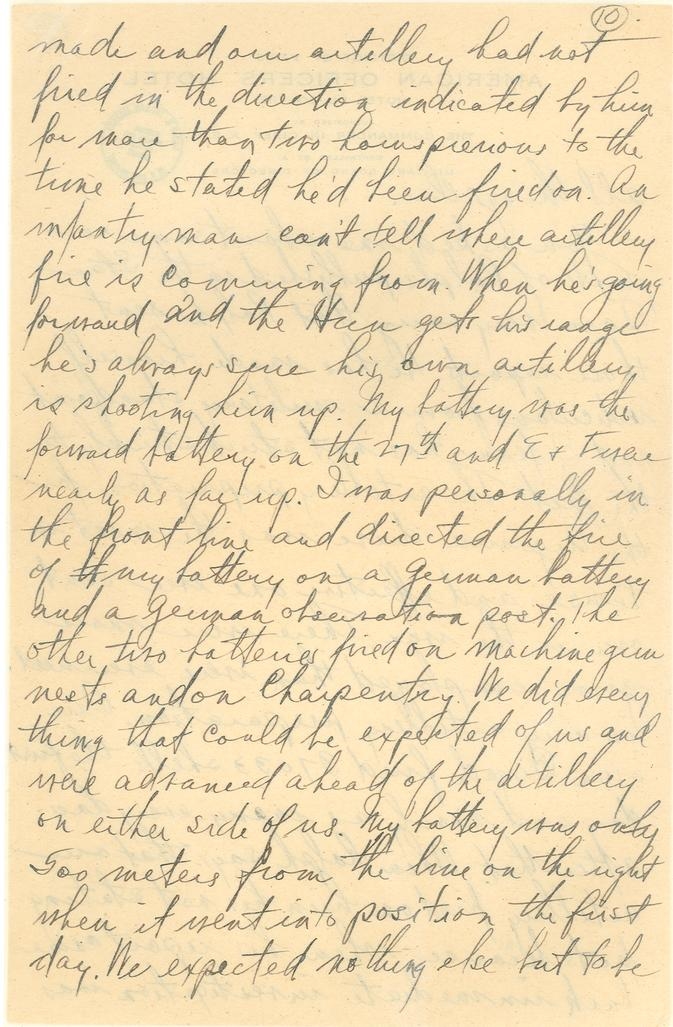 10
made and our artillery had not
fired in the direction indicated by him
for more than two hours previous to the
time he stated he'd been fired on. An
infantry man can't tell where artillery
fire is comming from. When he's going
forward and the Hun gets his range
he's always sure his own artillery
is shooting him up. My battery was the
forward battery on the 27th and E + F were
nearly as far up. I was personally in
the front line and directed the fire
of my battery on a German battery
and a German observation post. The
other two batteries fired on machine gun
nests and on Charpentry. We did every
thing that could be expected of us and
were advanced ahead of the artillery
on either side of us. My battery was only
500 meters from the line on the right
when it went into position the first
day. We expected nothing else but to be